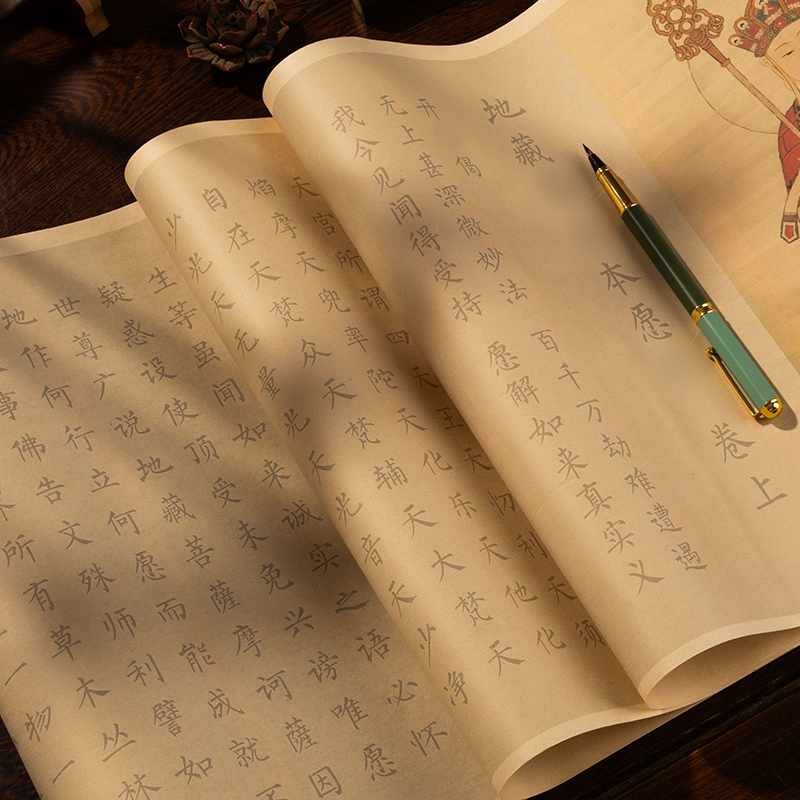 地藏 本愿 卷上
开偈
无上甚深微妙法 百千万劫难遭遇
我今见闻得受持 愿解如来真实义
天宫所谓四天王天忉利天须
焰摩天兜率陀天化乐天他化
自在天梵众天梵辅天大梵天
少光天无量光天光音天少净
生等虽闻如来诚实之语必怀
疑惑设使顶受未免兴谤唯愿
世尊广说地藏菩萨摩诃萨因
地作何行立何愿而能成就不
事佛告文殊师利譬如
所有草木丛林
一物一